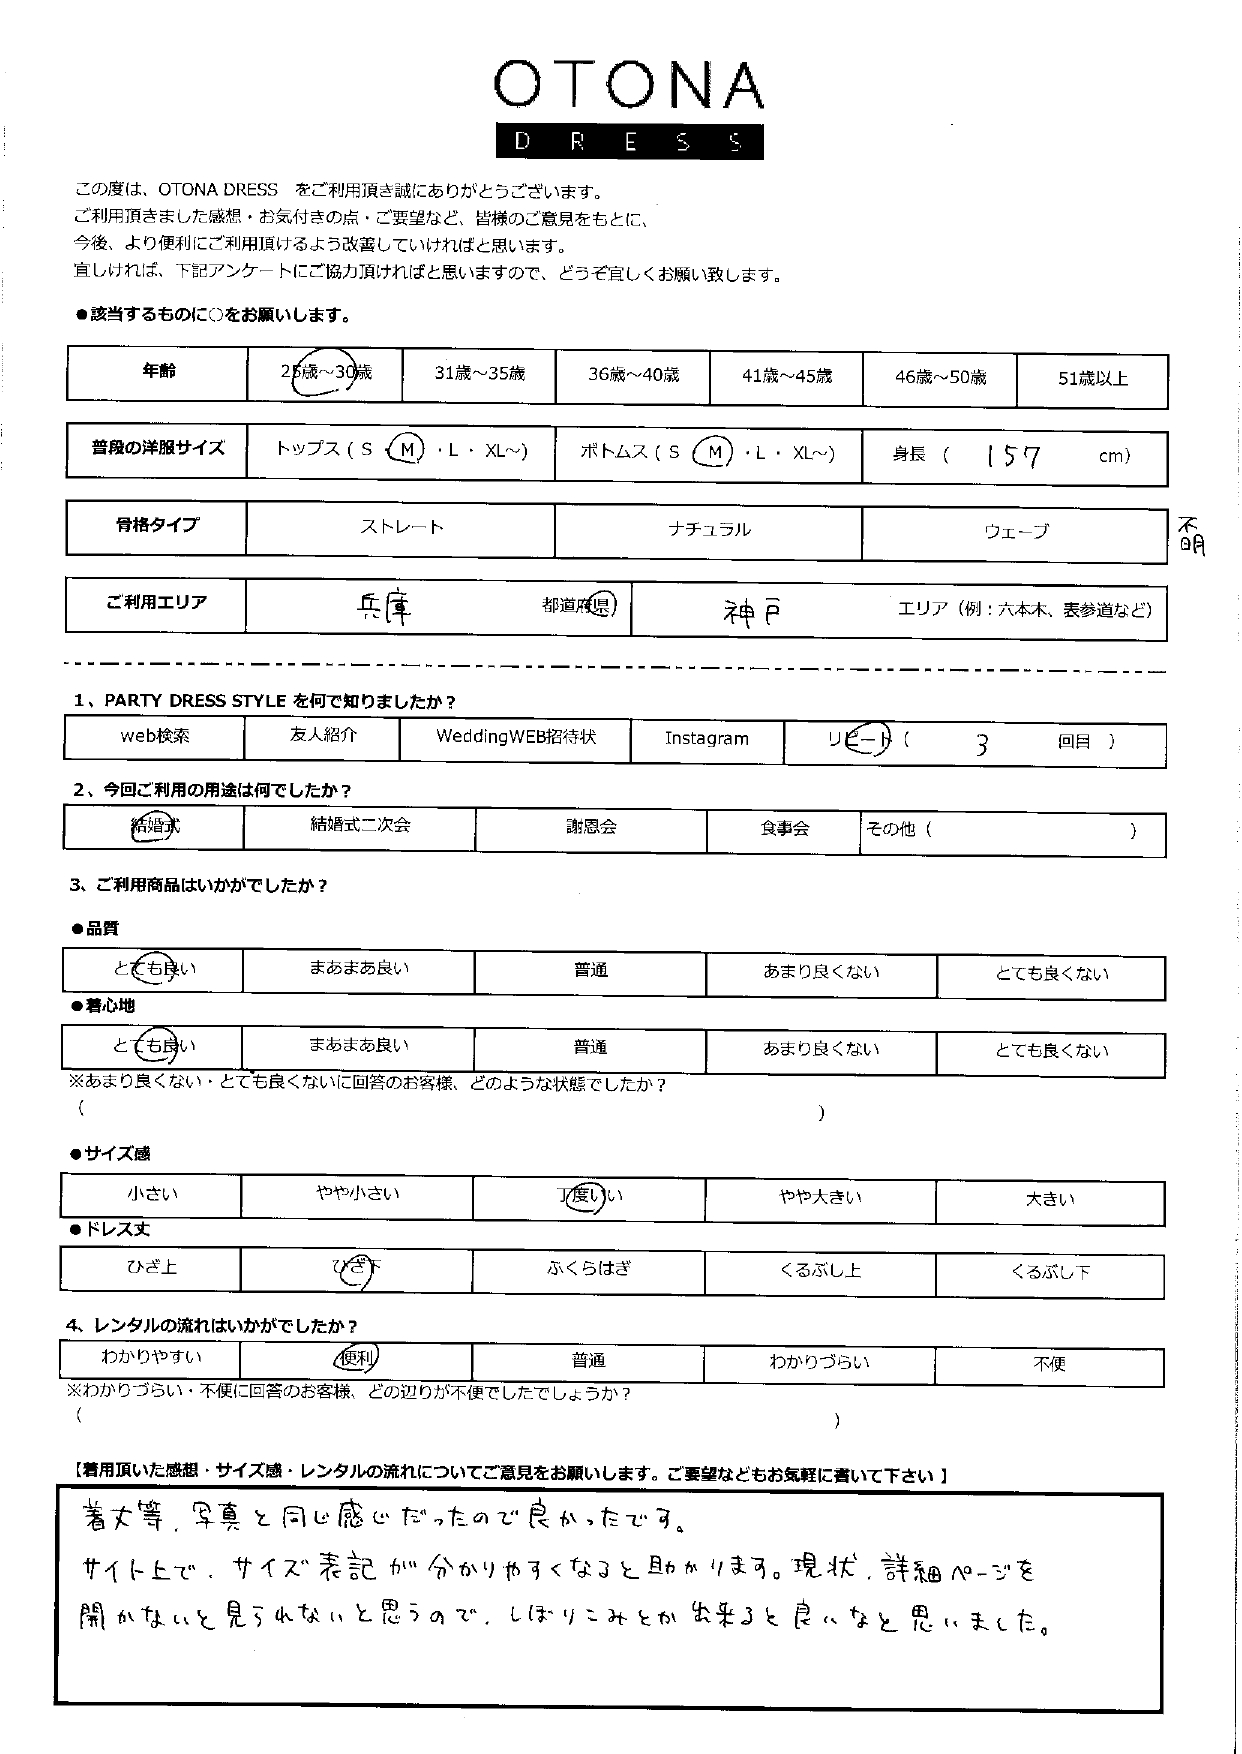 OTONA
DRESS
この度は、OTONA DRESS　をご利用頂き誠にありがとうございます。
ご利用頂きました感想・お気付きの点・ご要望など、皆様のご意見をもとに、
今後、より便利にご利用頂けるよう改善していければと思います。
宜しければ、下記アンケートにご協力頂ければと思いますので、どうぞ宜しくお願い致します。
●該当するものに○をお願いします。
年齢 25歳～30歳 31歳～35歳 36歳～40歳 41歳～45歳 46歳～50歳 51歳以上
普段の洋服サイズ トップス ( S ・ M ・ L ・ XL～) ボトムス ( S ・ M ・ L ・ XL～) 身長 ( 157 cm)
骨格タイプ ストレート ナチュラル ウェーブ 不明
ご利用エリア 兵庫 都道府県 神戸 エリア（例：六本木、表参道など）
1、PARTY DRESS STYLE を何で知りましたか？
web検索 友人紹介 WeddingWEB招待状 Instagram リピート ( 3 回目 )
2、今回ご利用の用途は何でしたか？
結婚式 結婚式二次会 謝恩会 食事会 その他 ( )
3、ご利用商品はいかがでしたか？
●品質
とても良い まあまあ良い 普通 あまり良くない とても良くない
●着心地
とても良い まあまあ良い 普通 あまり良くない とても良くない
※あまり良くない・とても良くないに回答のお客様、どのような状態でしたか？
( )
●サイズ感
小さい やや小さい 丁度いい やや大きい 大きい
●ドレス丈
ひざ上 ひざ下 ふくらはぎ くるぶし上 くるぶし下
4、レンタルの流れはいかがでしたか？
わかりやすい 便利 普通 わかりづらい 不便
※わかりづらい・不便に回答のお客様、どの辺りが不便でしたでしょうか？
( )
【着用頂いた感想・サイズ感・レンタルの流れについてご意見をお願いします。ご要望などもお気軽に書いて下さい 】
着丈等、写真と同じ感じだったので良かったです。
サイト上で、サイズ表記が分かりやすくなると助かります。現状、詳細ページを
開かないと見られないと思うので、しぼりこみとか出来ると良いなと思いました。